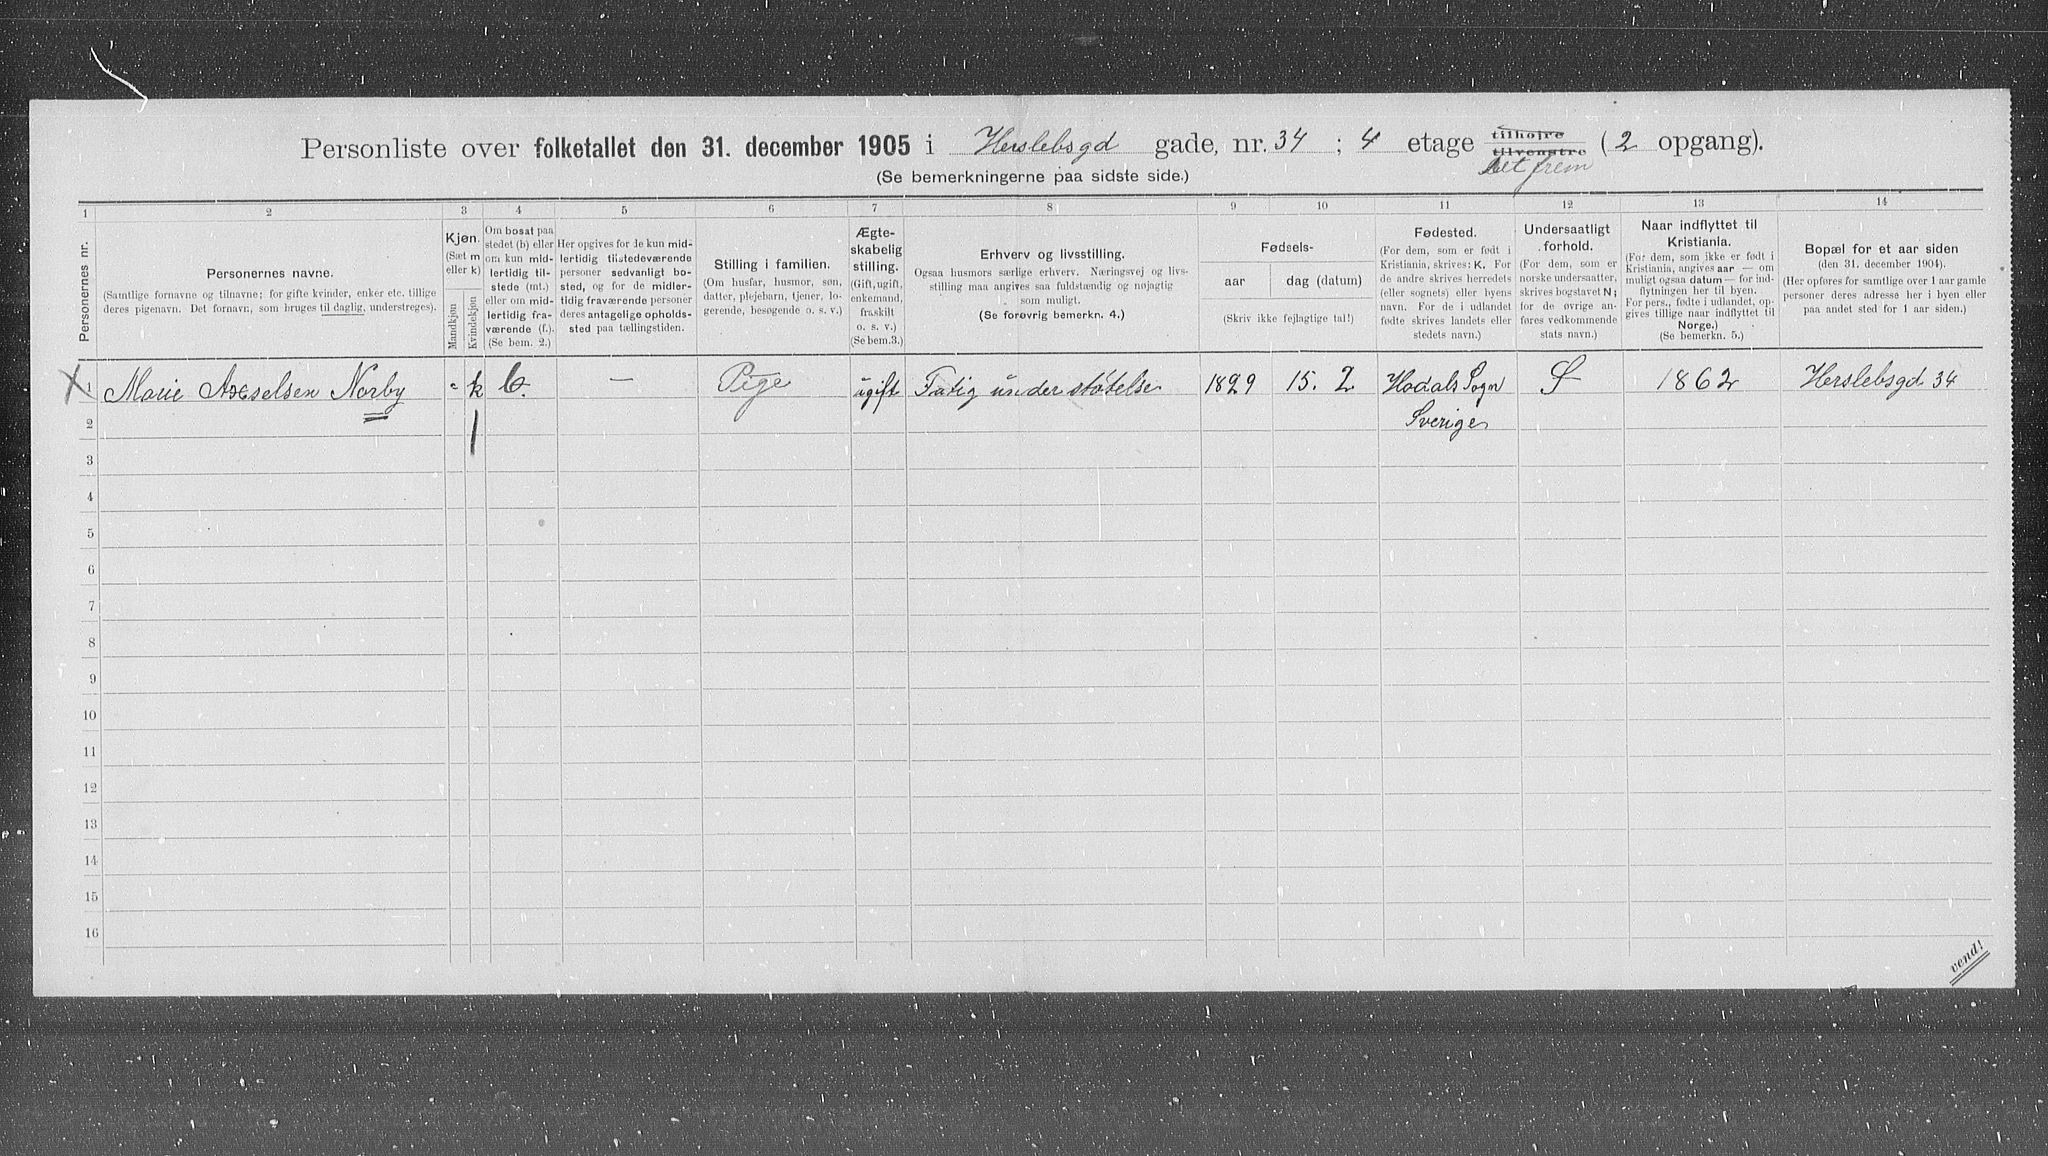 Personliste over folketallet den 31. december 1905 i Herslebsgd gade, nr. 34 ; 4 etage tilhøire (2 opgang).
tilvenstre
(Se bemerkningerne paa sidste side.) frem
1 2 3 4 5 6 7 8 9 10 11 12 13 14
Personernes nr.
Personernes navne.
(Samtlige fornavne og tilnavne; for gifte kvinder, enker etc. tillige
deres pigenavn. Det fornavn, som bruges til daglig, understreges).
Kjøn.
(Sæt m
eller k)
Mandkjøn
Kvindekjøn
Om bosat paa
stedet (b) eller
om kun mid-
lertidig til-
stede (mt.)
eller om mid-
lertidig fra-
værende (f.).
(Se bem. 2.)
Her opgives for de kun mid-
lertidig tilstedeværende
personer sedvanligt bo-
sted, og for de midler-
tidig fraværende personer
deres antagelige opholds-
sted paa tællingstiden.
Stilling i familien.
(Om husfar, husmor, søn,
datter, plejebarn, tjener, lo-
gerende, besøgende o. s. v.)
Ægte-
skabelig
stilling.
(Gift, ugift,
enkemand,
fraskilt
o. s. v.)
(Se bem.3.)
Erhverv og livsstilling.
Ogsaa husmors særlige erhverv. Næringsvej og livs-
stilling maa angives saa fuldstændig og nøjagtig
som muligt.
(Se forøvrig bemerkn. 4.)
Fødsels-
aar dag (datum)
(Skriv ikke fejlagtige tal!)
Fødested.
(For dem, som er født i
Kristiania, skrives: K. For
de andre skrives herredets
(eller sognets) eller byens
navn. For de i udlandet
fødte skrives landets eller
stedets navn.)
Undersaatligt
forhold.
(For dem, som er
norske undersaatter,
skrives bogstavet N;
for de øvrige an-
føres vedkommende
stats navn.)
Naar indflyttet til
Kristiania.
(For dem, som ikke er født i
Kristiania, angives aar — om
muligt ogsaa datum — for ind-
flytningen her til byen.
For pers., fødte i udlandet, op-
gives tillige naar indflyttet til
Norge.)
(Se bemerkn. 5.)
Bopæl for et aar siden
(den 31. december 1904).
(Her opføres for samtlige over 1 aar gamle
personer deres adresse her i byen eller
paa andet sted for 1 aar siden.)
1 Marie Axselsen Norby k b. — Pige ugift Fatig understøtelse 1829 15. 2 Hodals Sogn S 1862 Herslebsgd 34
2 Sverige
3
4
5
6
7
8
9
10
11
12
13
14
15
16
vend!